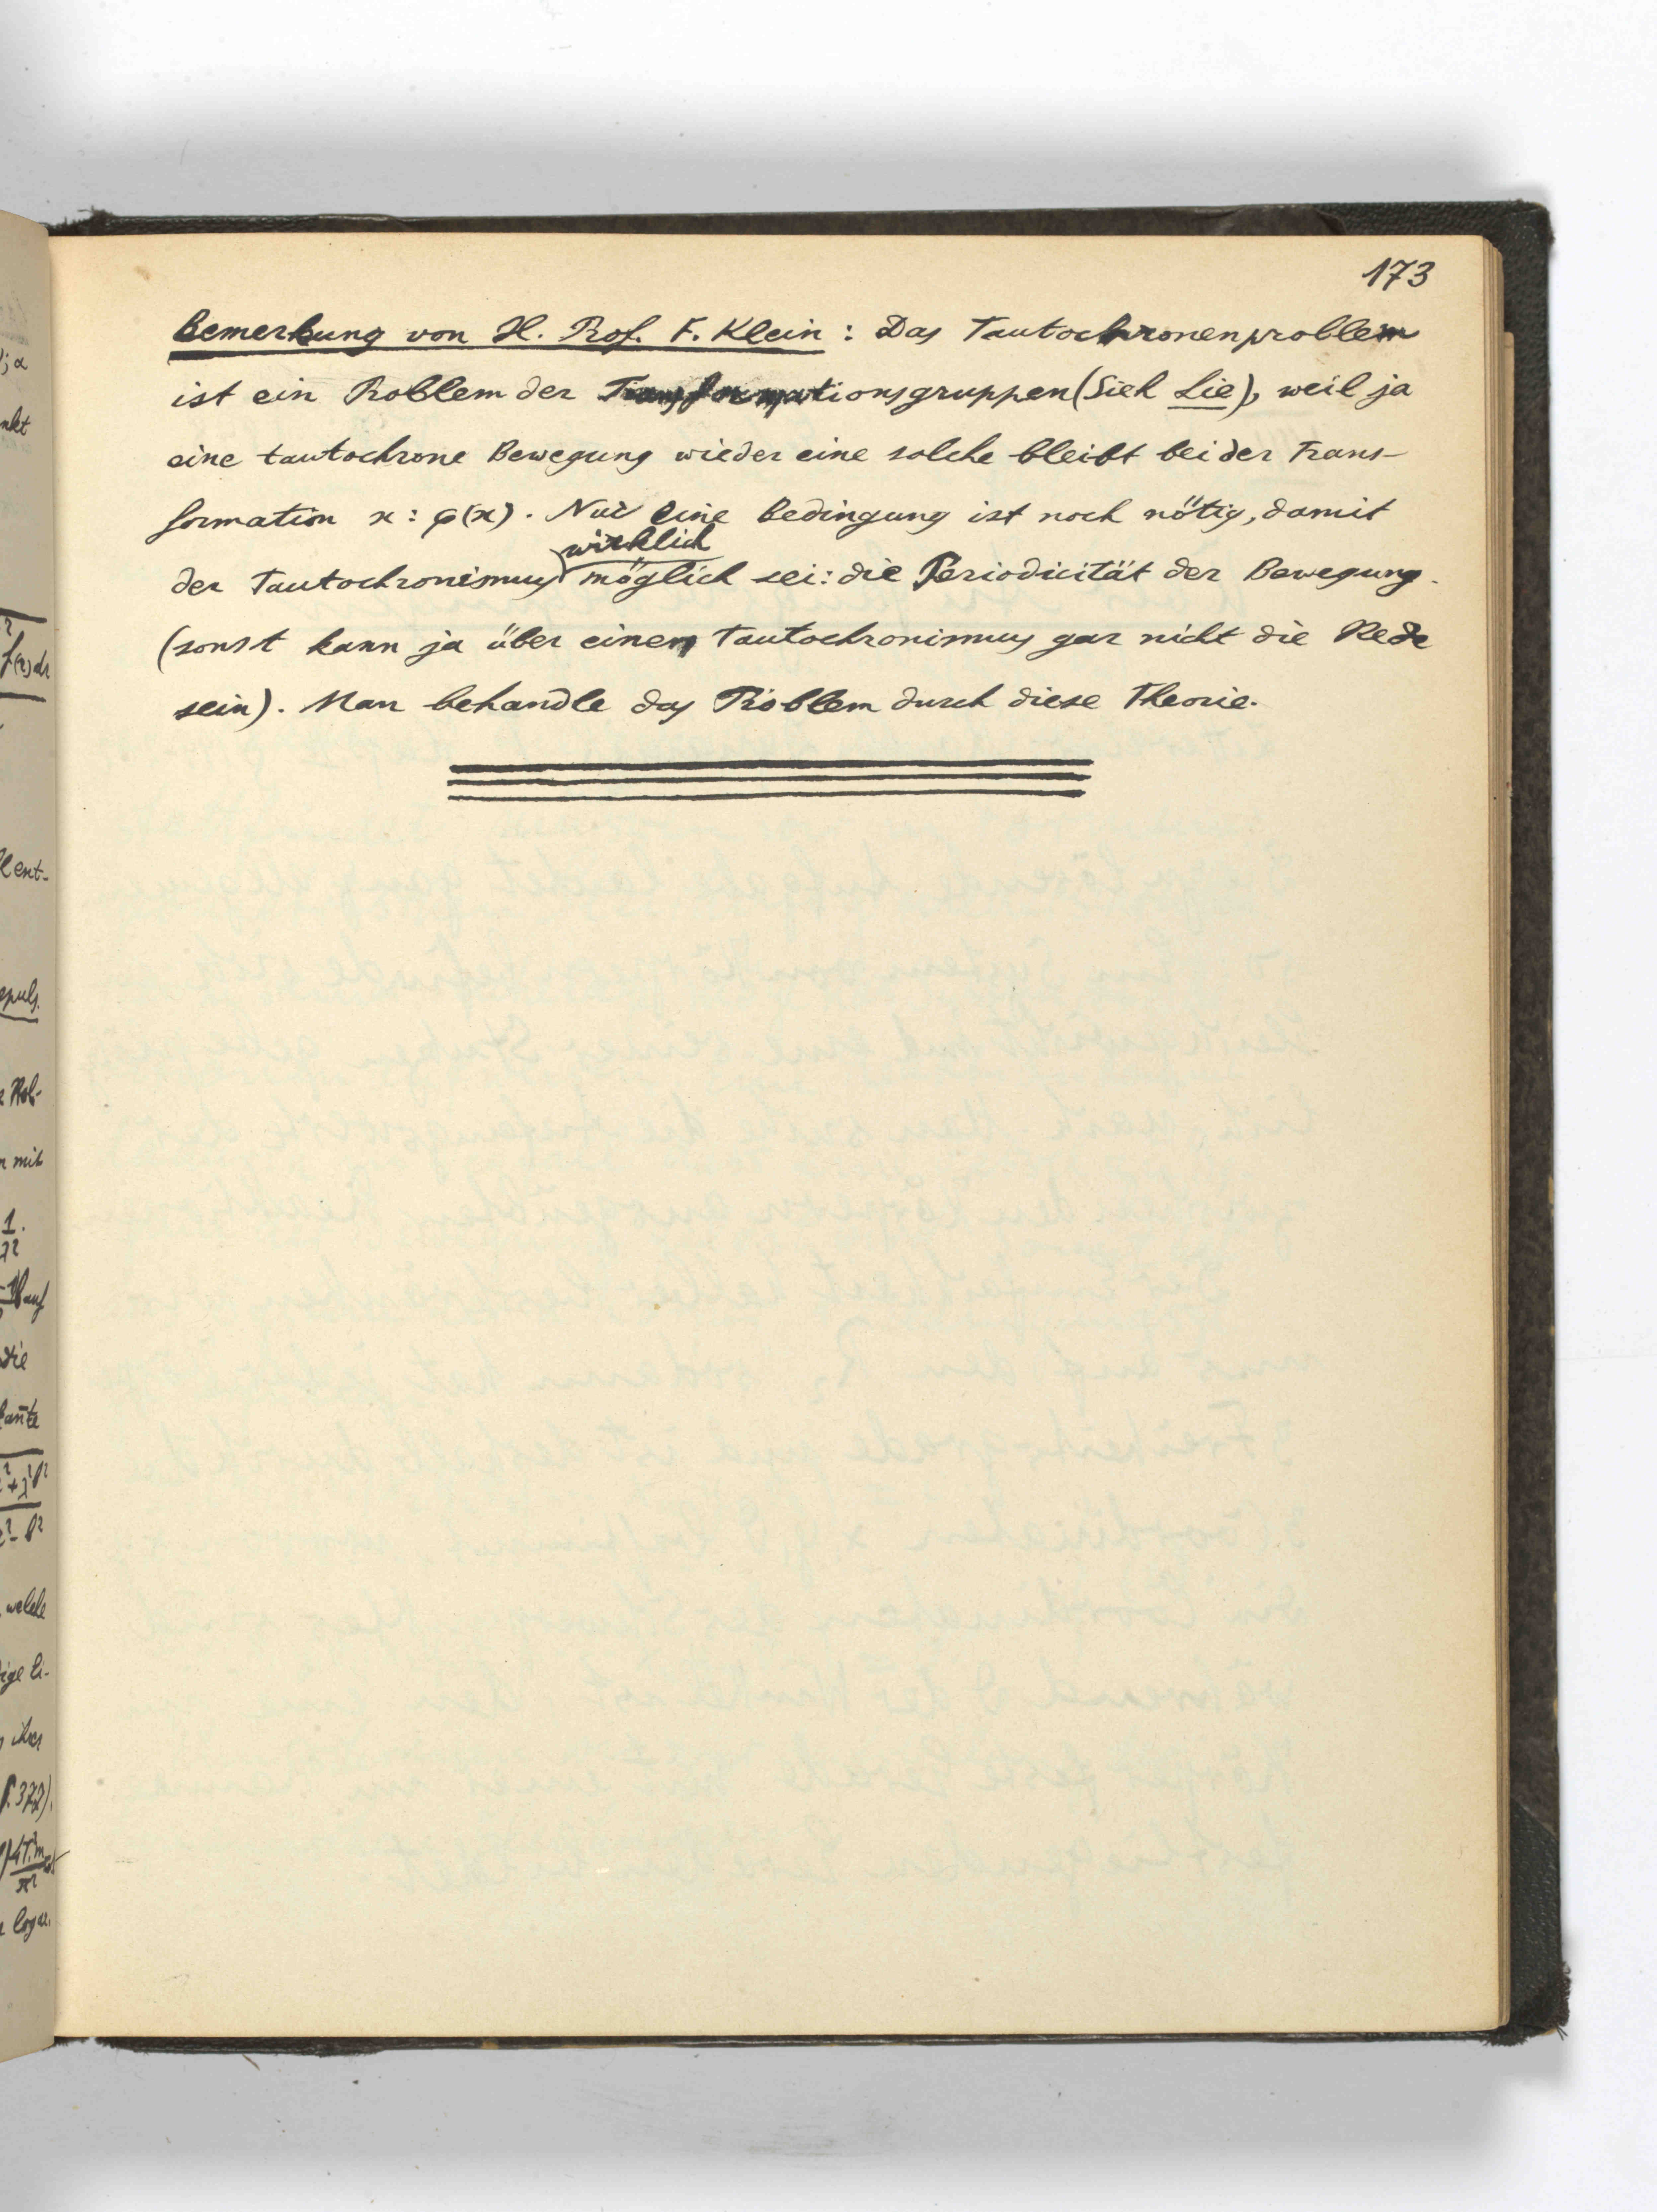 173
Bemerkung von H. Prof. F. Klein : Das Tautochronenproblem
ist ein Problem der Transformationsgruppen (Sieh Lie), weil ja
eine tautochrone Bewegung wieder eine solche bleibt bei der Trans-
formation x : φ(x) . Nur eine Bedingung ist noch nötig, damit
wirklich
der Tautochronismus möglich sei : die Periodicität der Bewegung.
(sonst kann ja über einen Tautochronismus gar nicht die Rede
sein). Man behandle das Problem durch diese Theorie.